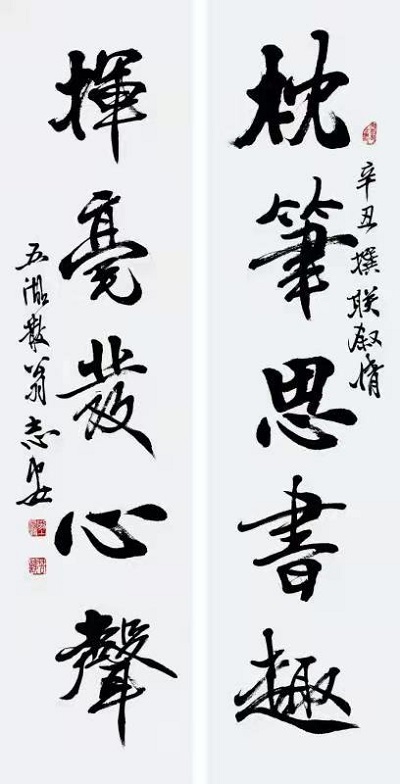 枕筆思書趣
辛丑撰联叙情
揮毫發心聲
五湖散翁志